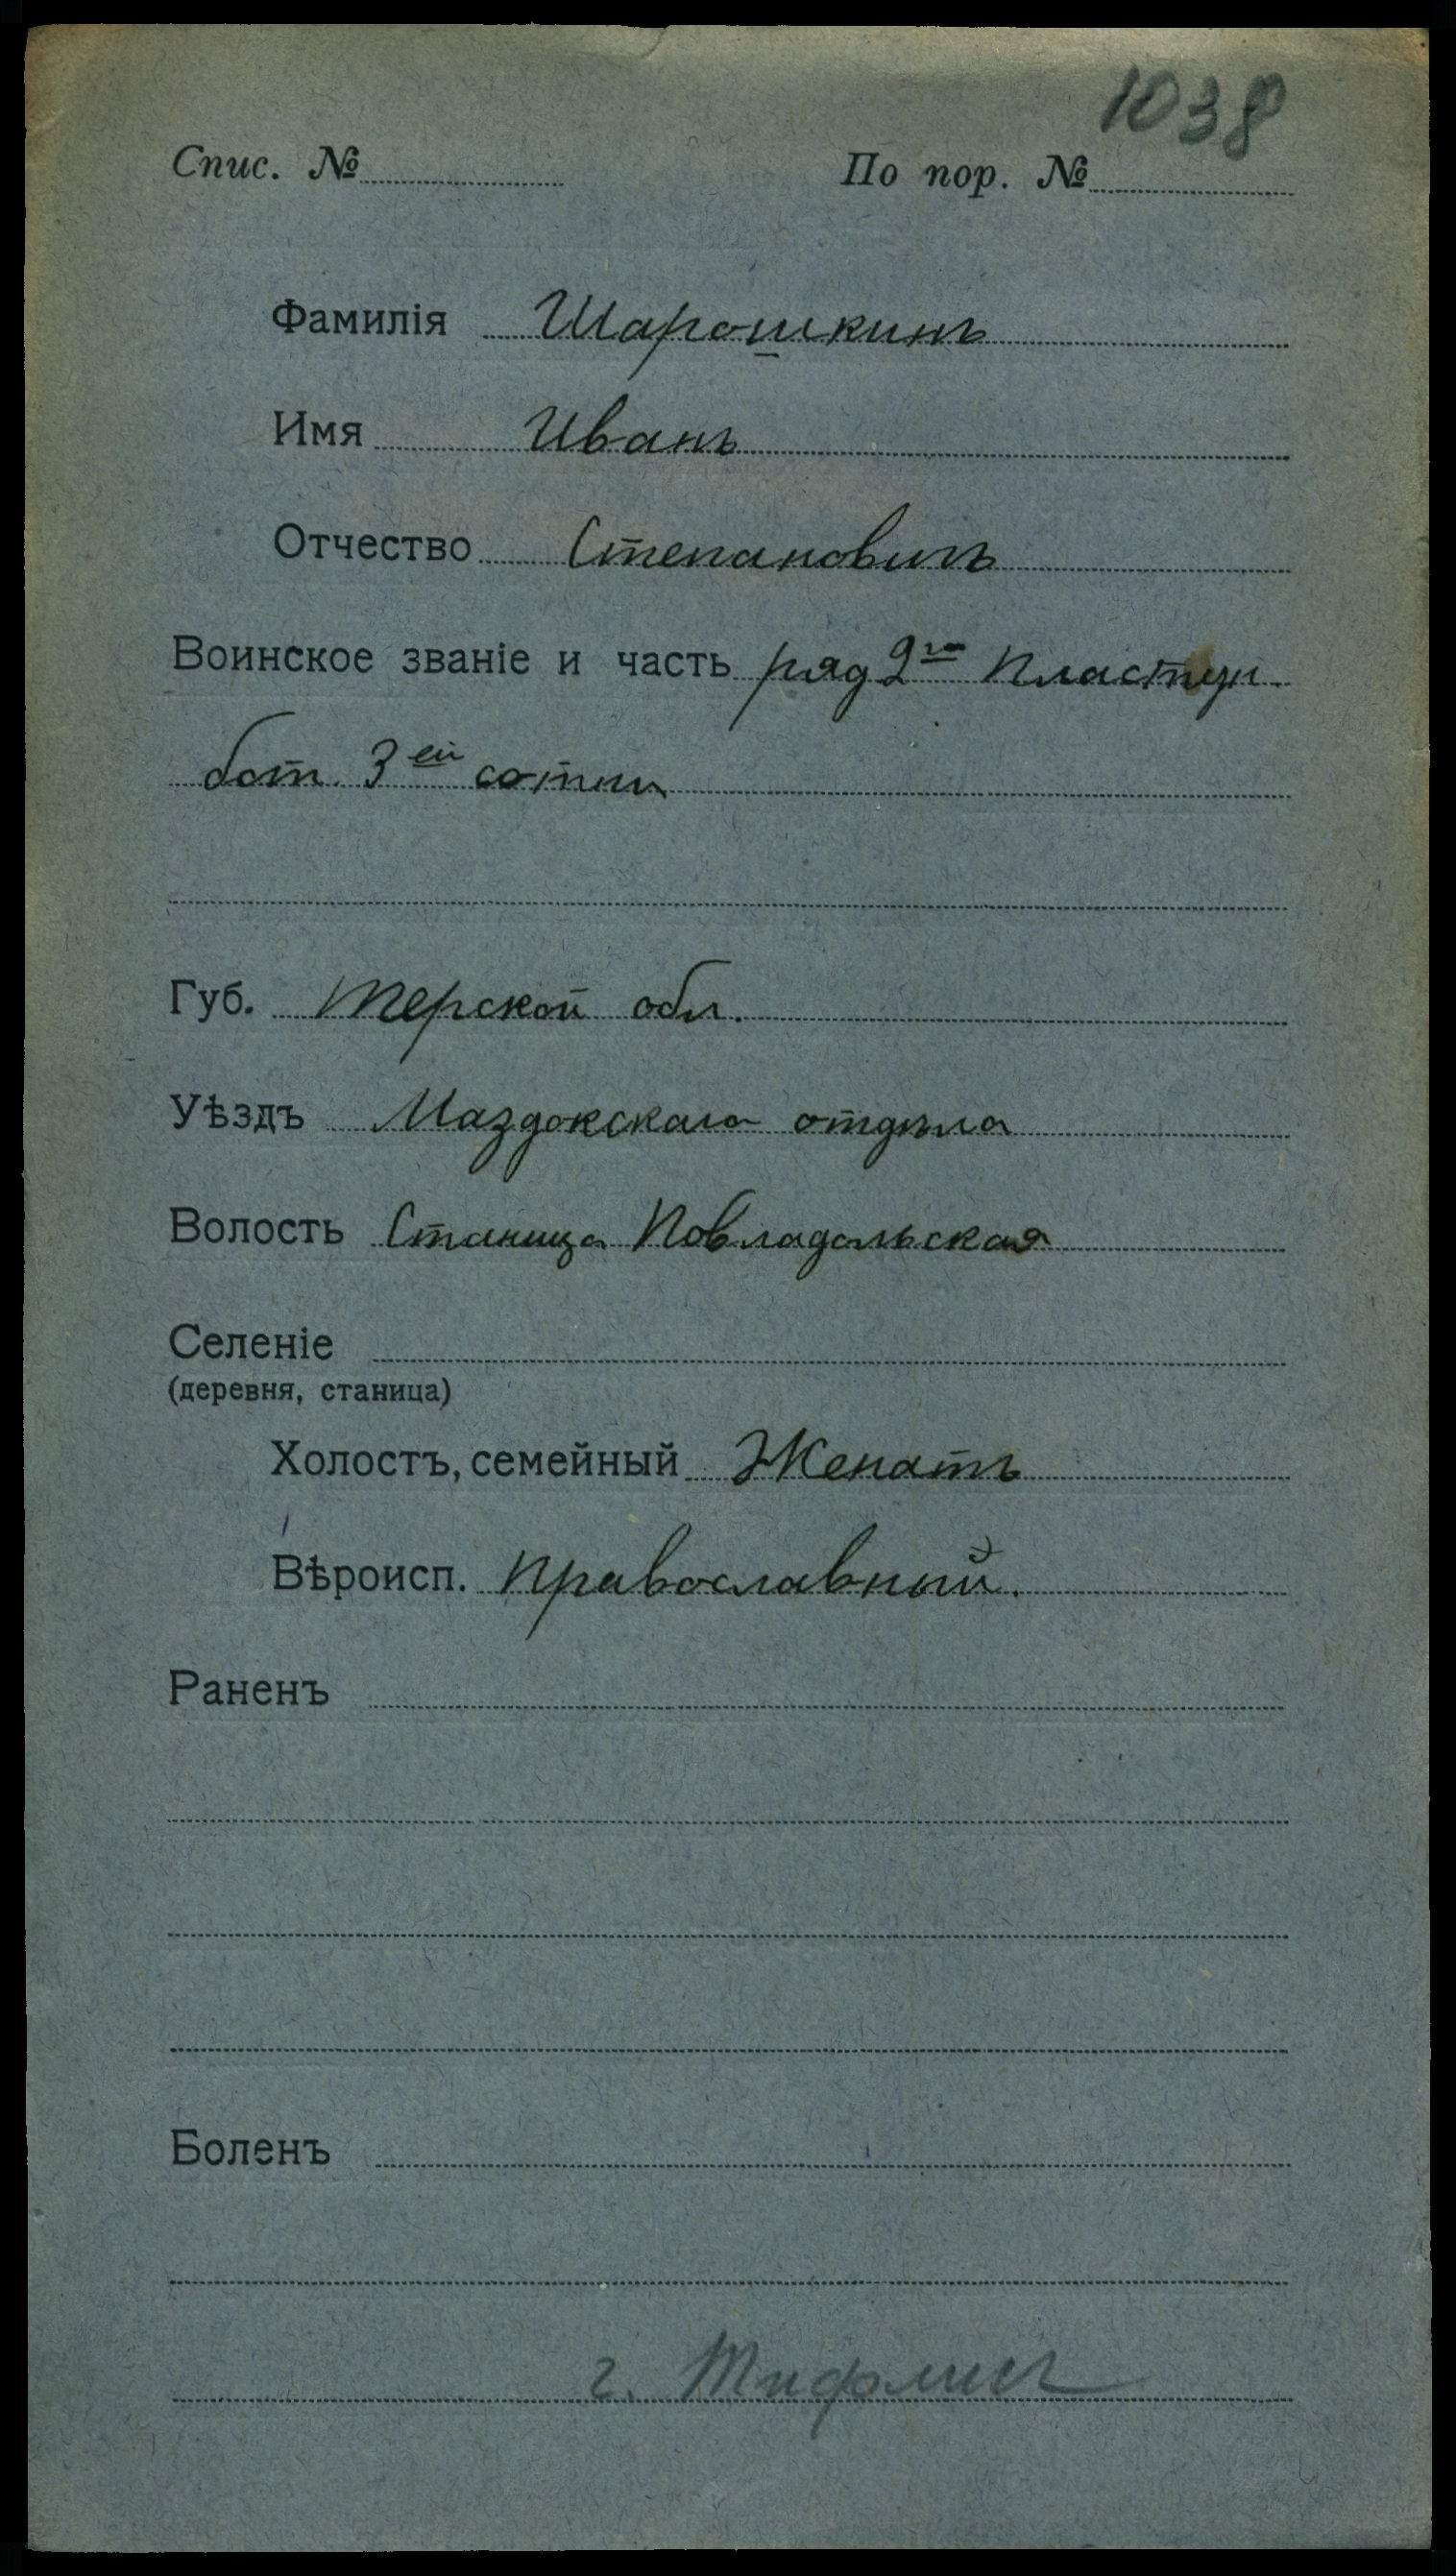 1038
Спис. № По пор. №
Фамилія Шарошкинъ
Имя Иванъ
Отчество Степановичъ
Воинское званіе и часть ряд 2го Пластун.
бат. 3ей сотни
Губ. Терской обл.
Уѣздъ Маздокскаго отдѣла
Волость Станица Повладольская
Селеніе
(деревня, станица)
Холостъ, семейный Женатъ
Вѣроисп. православный.
Раненъ
Боленъ
г. Тифлисъ